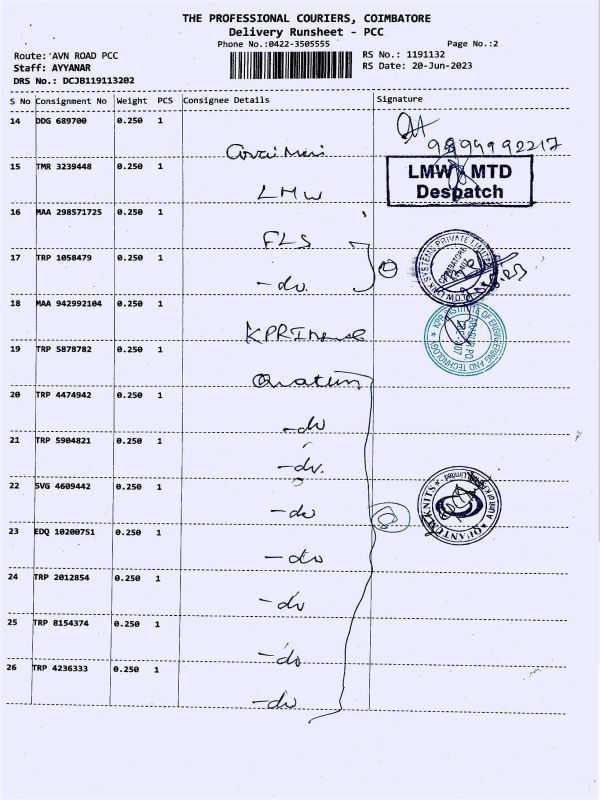 THE PROFESSIONAL COURIERS, COIMBATORE
Delivery Runsheet - PCC
Phone No.:0422-3505555 Page No.:2
Route: AVN ROAD PCC RS No.: 1191132
Staff: AYYANAR RS Date: 20-Jun-2023
DRS No.: DCJB119113202
S No Consignment No Weight PCS Consignee Details Signature
14 DDG 689700 0.250 1
9894992217
15 TMR 3239448 0.250 1 LMW
LMW MTD
Despatch
16 MAA 298571725 0.250 1 FLS
17 TRP 1058479 0.250 1 -do.
SYSTEMS PRIVATE LIMITED
18 MAA 942992104 0.250 1
KPR INSTITUTE OF ENGINEERING AND TECHNOLOGY
19 TRP 5878782 0.250 1
20 TRP 4474942 0.250 1 -do
21 TRP 5904821 0.250 1 -do.
22 SVG 4609442 0.250 1 -do
QUANTUM KNITS
23 EDQ 10200751 0.250 1 -do
24 TRP 2012854 0.250 1 -do
25 TRP 8154374 0.250 1 -do
26 TRP 4236333 0.250 1 -do